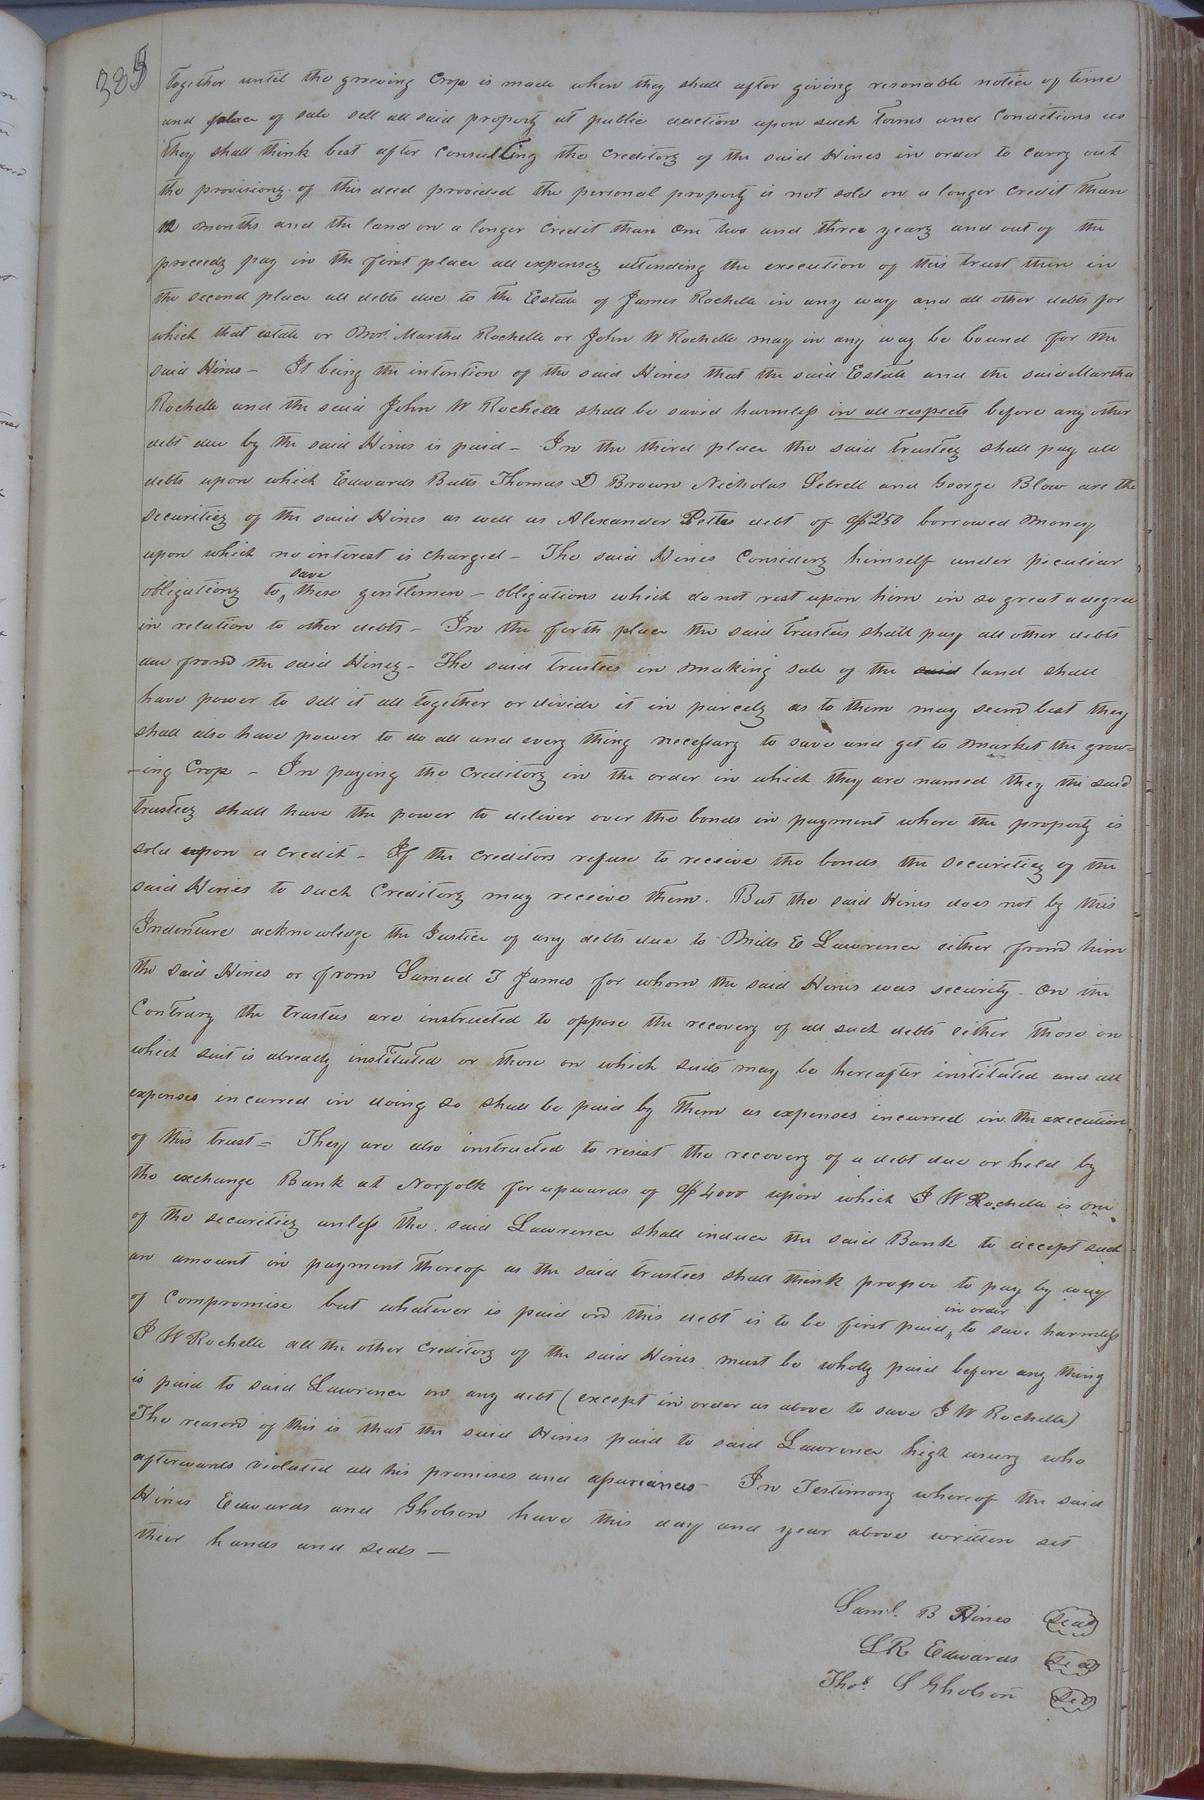 388
together until the growing Crop is made when they shall after giving resonable notice of time
and place of sale sell all said property at public auction upon such terms and conditions as
they shall think best after consulting the creditors of the said Hines in order to carry out
the provisions of this deed provided the personal property is not sold on a longer credit than
12 months and the land on a longer credit than one two and three years and out of the
proceeds pay in the first place all expenses attending the execution of this trust then in
the second place all debts due to the Estate of James Rochelle in any way and all other debts for
which that estate or Mrs. Martha Rochelle or John W Rochelle may in any way be bound for the
said Hines - It being the intention of the said Hines that the said Estate and the said Martha
Rochelle and the said John W Rochelle shall be saved harmless in all respects before any other
debt due by the said Hines is paid - In the third place the said trustees shall pay all
debts upon which Edwards Butts Thomas D Brown Nicholas Sebrell and George Blow are the
securities of the said Hines as well as Alexander debt of $250 borrowed money
upon which no interest is charged - The said Hines Considers himself under peculiar
obligations to save these gentlemen - obligations which do not rest upon him in so great a degree
in relation to other debts - In the forth place the said trustees shall pay all other debts
due from the said Hines - The said trustees in making sale of the said land shall
have power to sell it all together or divide it in parcels as to them may seem best they
shall also have power to do all and every thing necessary to save and get to market the grow=
-ing Crop - In paying the Creditors in the order in which they are named they the said
trustees shall have the power to deliver over the bonds in payment where the property is
sold upon a credit - If the creditors refuse to receive the bonds the securities of the
said Hines to such Creditors may receive them. But the said Hines does not by this
Indenture acknowledge the Justice of any debts due to Mills E Lawrence either from him
the said Hines or from Samuel T James for whom the said Hines was security - On the
Contrary the trustees are instructed to oppose the recovery of all such debts either those on
which suit is already instituted or those on which suits may be hereafter instituted and all
expenses incurred in doing so shall be paid by them as expenses incurred in the execution
of this trust - They are also instructed to resist the recovery of a debt due or held by
the exchange Bank at Norfolk for upwards of $4000 upon which J W Rochelle is one
of the securities unless the said Lawrence shall induce the said Bank to accept such
an amount in payment thereof as the said trustees shall think proper to pay by way
of Compromise but whatever is paid on this debt is to be first paid in order to save harmless
J W Rochelle all the other Creditors of the said Hines must be wholly paid before any thing
is paid to said Lawrence on any debt (except in order as above to save J W Rochelle)
The reason of this is that the said Hines paid to said Lawrence high usury who
afterwards violated all his promises and assurances In Testimony whereof the said
Hines Edwards and Gholson have this day and year above written set
their hands and seals -
Saml. B Hines Seal
L R Edwards Seal
Thos. S Gholson Seal